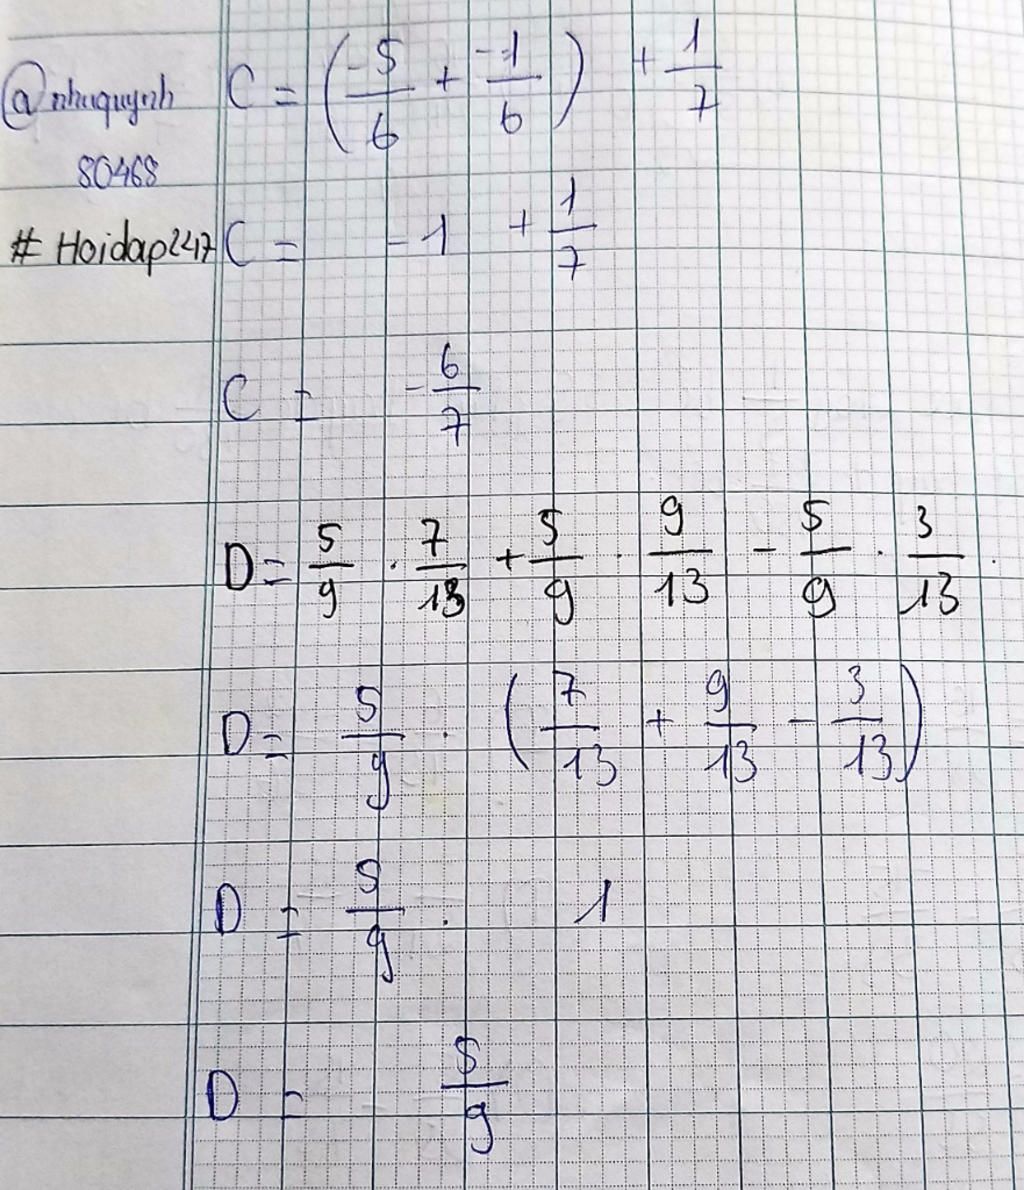 @nhuquynh
80468
# Hoidap247
C = (-5/6 + -1/6) + 1/7
C = -1 + 1/7
C = -6/7
D = 5/9 . 7/13 + 5/9 . 9/13 - 5/9 . 3/13 .
D = 5/9 . (7/13 + 9/13 - 3/13)
D = 5/9 . 1
D = 5/9